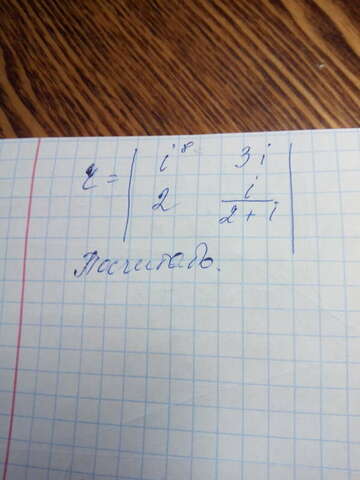 z = | i⁸ 3i |
| 2 i/(2+i) |
Посчитать.